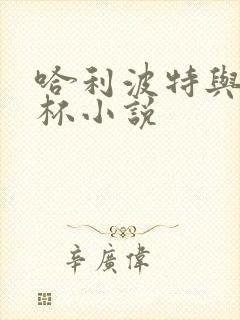 哈利波特與
杯小說
辛廣偉